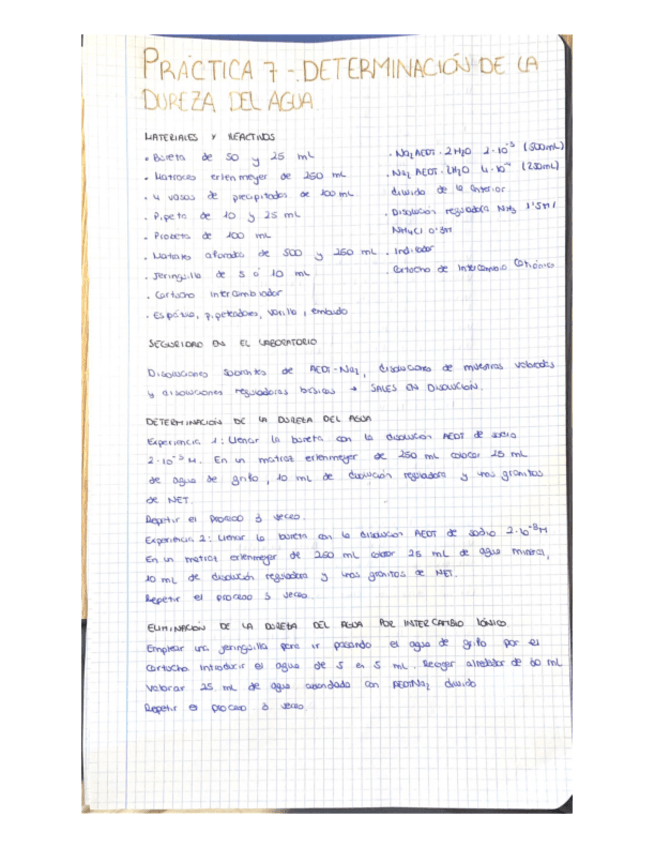 PRÁCTICA 7 - DETERMINACIÓN DE LA
DUREZA DEL AGUA
MATERIALES Y REACTIVOS
· Bureta de 50 y 25 mL
· Matraces erlenmeyer de 250 mL
· 4 vasos de precipitados de 100 mL
· Pipeta de 10 y 25 mL
· Probeta de 100 mL
· Matraz aforados de 500 y 250 mL
· Jeringuilla de 5 ó 10 mL
· Cartucho intercambiador
· Espátula, pipeteadores, varilla, embudo
· Na2 AEDT · 2H2O 2·10⁻³ (500mL)
· Na2 AEDT · 2H2O 4·10 (250mL)
diluida de la anterior
· Disolución reguladora NH3 1'5M
NH4Cl 0'3M
· Indicador
· Cartucho de intercambio catiónico
SEGURIDAD EN EL LABORATORIO
Disoluciones sobrantes de AEDT-Na2, disoluciones de muestras valoradas
y disoluciones reguladoras básicas → SALES EN DISOLUCIÓN.
DETERMINACIÓN DE LA DUREZA DEL AGUA
Experiencia 1: Llenar la bureta con la disolución AEDT de sodio
2·10⁻³ M. En un matraz erlenmeyer de 250 mL colocar 25 mL
de agua de grifo, 10 mL de disolución reguladora y unos granitos
de NET.
Repetir el proceso 3 veces.
Experiencia 2: Llenar la bureta con la disolución AEDT de sodio 2·10⁻³M
En un matraz erlenmeyer de 250 mL colocar 25 mL de agua mineral,
10 mL de disolución reguladora y unos granitos de NET.
Repetir el proceso 3 veces.
ELIMINACIÓN DE LA DUREZA DEL AGUA POR INTERCAMBIO IÓNICO
Emplear una jeringuilla para ir pasando el agua de grifo por el
cartucho. Introducir el agua de 5 en 5 mL. Recoger alrededor de 60 mL
Valorar 25 mL de agua ablandada con AEDTNa2 diluido
Repetir el proceso 3 veces.